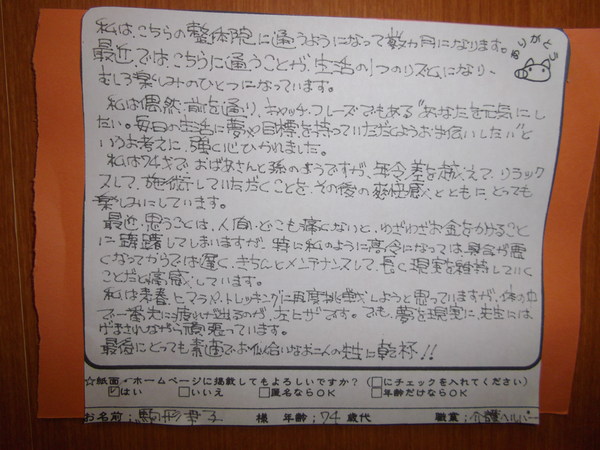 私は、こちらの整体院に通うようになって数ヵ月になります。
最近では、こちらに通うことが、生活の1つのリズムになり、
むしろ楽しみのひとつになっています。
私は偶然、前を通り、キャッチ・フレーズでもある"あなたを元気にし
たい。毎日の生活に夢や目標を持っていただくようお手伝いしたい"と
いうお考えに、強く心ひかれました。
私は74才で、おばあさんと孫のようですが、年令差を越えて、リラック
スして、施術していただくことを、その後の爽快感とともに、とっても
楽しみにしています。
最近、思うことは、人間、どこも痛くないと、わざわざお金をかけること
に躊躇してしまいますが、特に私のように高令になっては、具合が悪
くなってからでは遅く、きちんとメンテナンスして、長く現実を維持していく
ことだと痛感しています。
私は来春、ヒマラヤ・トレッキングに再度挑戦しようと思っていますが、体の中
で一番先に疲れが出るのが、左ヒザです。でも、夢を現実に、先生には
げまされながら頑張っています。
最後にとっても素直でお似合いなお二人の先生に乾杯!!
ありがとう
☆紙面・ホームページに掲載してもよろしいですか?(□にチェックを入れてください)
☑はい □いいえ □匿名ならOK □年齢だけならOK
お名前: 様 年齢:74歳代 職業:介護ヘルパー